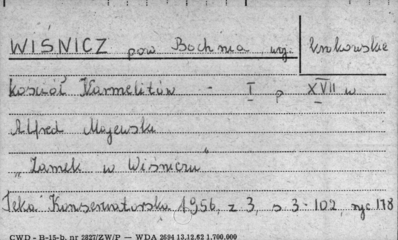 WIŚNICZ pow Bochnia woj. krakowskie
kościół Karmelitów - I p XVII w
Alfred Majewski
"Zamek w Wiśniczu"
Teka Konserwatorska 1956, z 3, s 3-102, ryc 178
CWD - B-15-b, nr 2827/ZW/P — WDA 2094 13.12.62 1,700,000